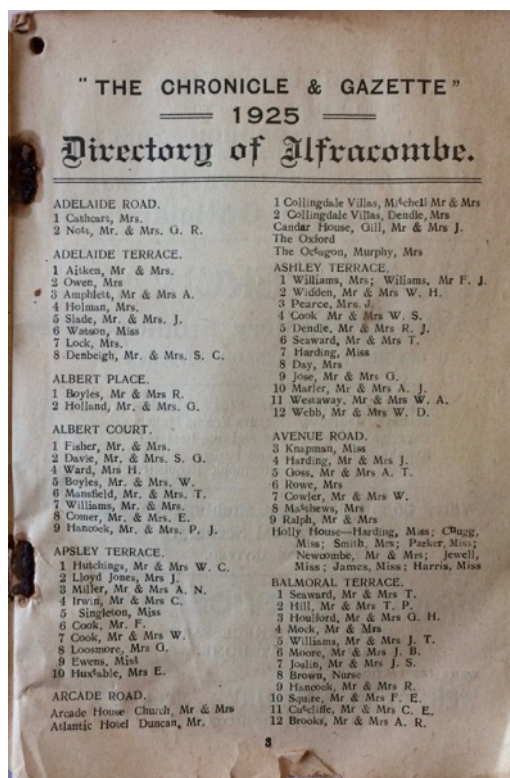 "THE CHRONICLE & GAZETTE"
1925
Directory of Ilfracombe.
ADELAIDE ROAD.
1 Cathcart, Mrs.
2 Nott, Mr. & Mrs. G. R.
ADELAIDE TERRACE.
1 Aitken, Mr & Mrs.
2 Owen, Mrs
3 Amphlett, Mr & Mrs A.
4 Holman, Mrs.
5 Slade, Mr. & Mrs. J.
6 Watson, Miss
7 Lock, Mrs.
8 Denbeigh, Mr. & Mrs. S. C.
ALBERT PLACE.
1 Boyles, Mr & Mrs R.
2 Holland, Mr. & Mrs. G.
ALBERT COURT.
1 Fisher, Mr. & Mrs.
2 Davie, Mr. & Mrs. S. G.
4 Ward, Mrs H.
5 Boyles, Mr. & Mrs. W.
6 Mansfield, Mr. & Mrs. T.
7 Williams, Mr. & Mrs.
8 Comer, Mr. & Mrs. E.
9 Hancock, Mr. & Mrs. P. J.
APSLEY TERRACE.
1 Hutchings, Mr & Mrs W. C.
2 Lloyd Jones, Mrs J.
3 Miller, Mr & Mrs A. N.
4 Irwin, Mr & Mrs C.
5 Singleton, Miss
6 Cook, Mr. F.
7 Cook, Mr & Mrs W.
8 Loosmore, Mrs G.
9 Ewens, Miss
10 Huxtable, Mrs E.
ARCADE ROAD.
Arcade House Church, Mr & Mrs
Atlantic Hotel Duncan, Mr.
1 Collingdale Villas, Mitchell Mr & Mrs
2 Collingdale Villas, Dendle, Mrs
Candar House, Gill, Mr & Mrs J.
The Oxford
The Octagon, Murphy, Mrs
ASHLEY TERRACE.
1 Williams, Mrs; Wiliams, Mr F. J.
2 Widden, Mr & Mrs W. H.
3 Pearce, Mrs. J.
4 Cook Mr & Mrs W. S.
5 Dendle, Mr & Mrs R. J.
6 Seaward, Mr & Mrs T.
7 Harding, Miss
8 Day, Mrs
9 Jose, Mr & Mrs G.
10 Marler, Mr & Mrs A. J.
11 Westaway, Mr & Mrs W. A.
12 Webb, Mr & Mrs W. D.
AVENUE ROAD.
3 Knapman, Miss
4 Harding, Mr & Mrs J.
5 Goss, Mr & Mrs A. T.
6 Rowe, Mrs
7 Cowler, Mr & Mrs W.
8 Matthews, Mrs
9 Ralph, Mr & Mrs
Holly House—Harding, Miss; Chugg,
Miss; Smith, Mrs; Parker, Miss;
Newcombe, Mr & Mrs; Jewell,
Miss; James, Miss; Harris, Miss
BALMORAL TERRACE.
1 Seaward, Mr & Mrs T.
2 Hill, Mr & Mrs T. P.
3 Houlford, Mr & Mrs G. H.
4 Mock, Mr & Mrs
5 Williams, Mr & Mrs J. T.
6 Moore, Mr & Mrs J. B.
7 Joslin, Mr & Mrs J. S.
8 Brown, Nurse
9 Hancock, Mr & Mrs R.
10 Squire, Mr & Mrs F. E.
11 Cutcliffe, Mr & Mrs C. E.
12 Brooks, Mr & Mrs A. R.
3